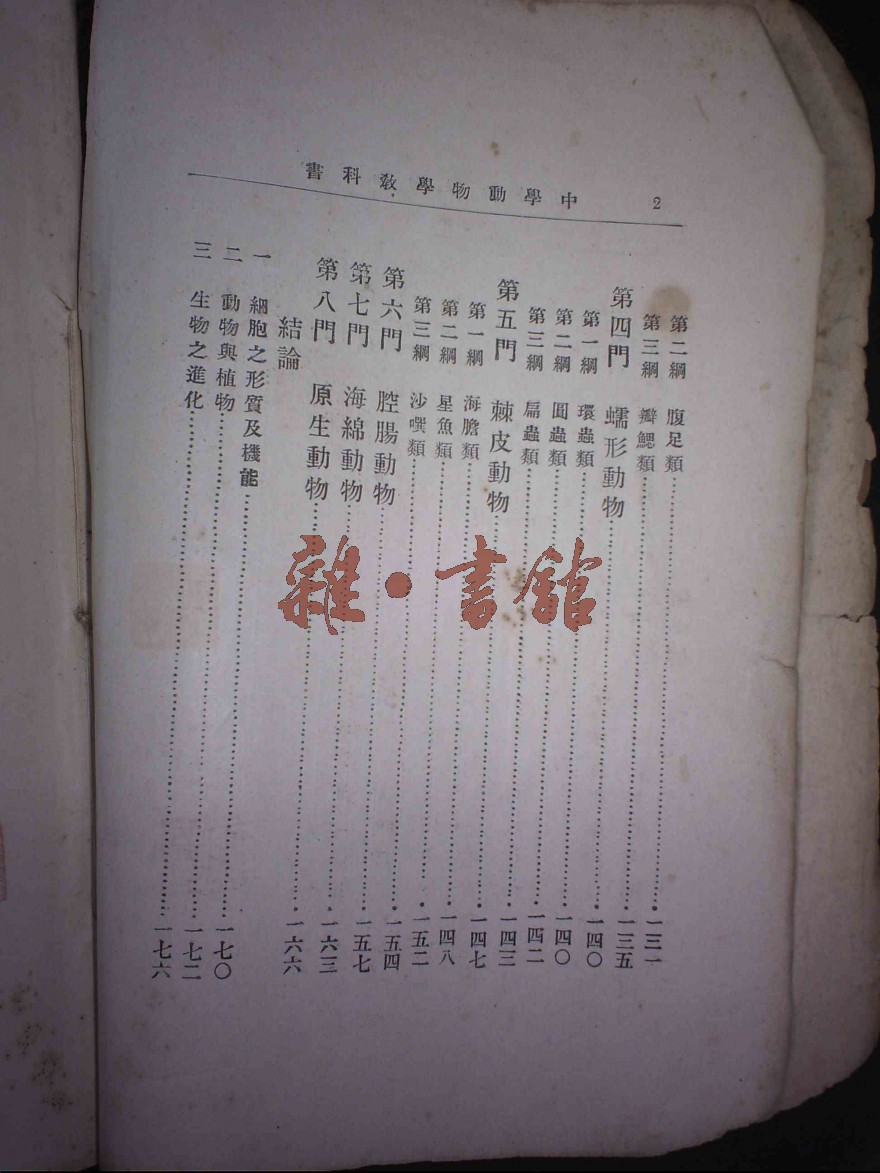 中學動物學敎科書 2
第二綱 腹足類……一三一
第三綱 瓣鰓類……一三五
第四門 蠕形動物……一四〇
第一綱 環蟲類……一四〇
第二綱 圓蟲類……一四二
第三綱 扁蟲類……一四三
第五門 棘皮動物……一四七
第一綱 海膽類……一四八
第二綱 星魚類……一五二
第三綱 沙噀類……一五四
第六門 腔腸動物……一五七
第七門 海綿動物……一六三
第八門 原生動物……一六六
結論
一 細胞之形質及機能……一七〇
二 動物與植物……一七二
三 生物之進化……一七六
雜·書館